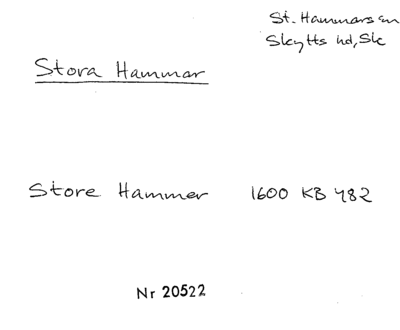 St. Hammars sn
Skytts hd, Sk
Stora Hammar
Store Hammer 1600 KB 482
Nr 20522